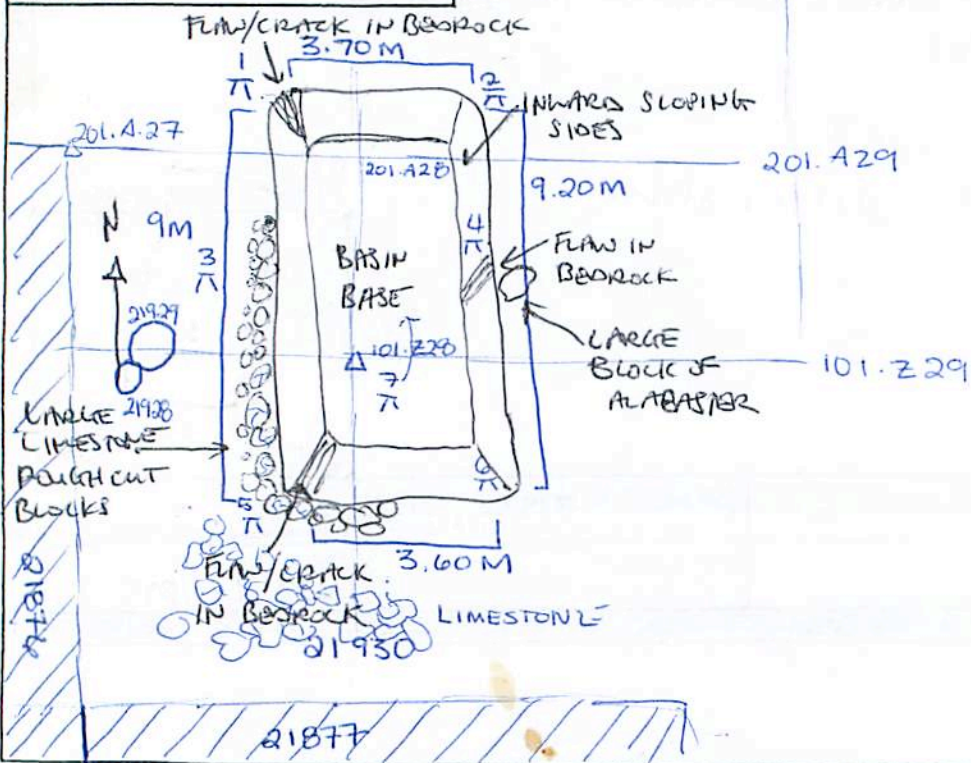 FLAW/CRACK IN BEDROCK
3.70 M
1
2
INWARD SLOPING
SIDES
201.A.27
201.A28
201.A29
N
9M
9.20M
3
4
BASIN
BASE
FLAW IN
BEDROCK
21929
101.Z28
101.Z29
7
LARGE
BLOCK OF
ALABASTER
21928
LARGE
LIMESTONE
ROUGH CUT
BLOCKS
5
6
3.60 M
FLAW/CRACK
IN BEDROCK
LIMESTONE
21930
21877